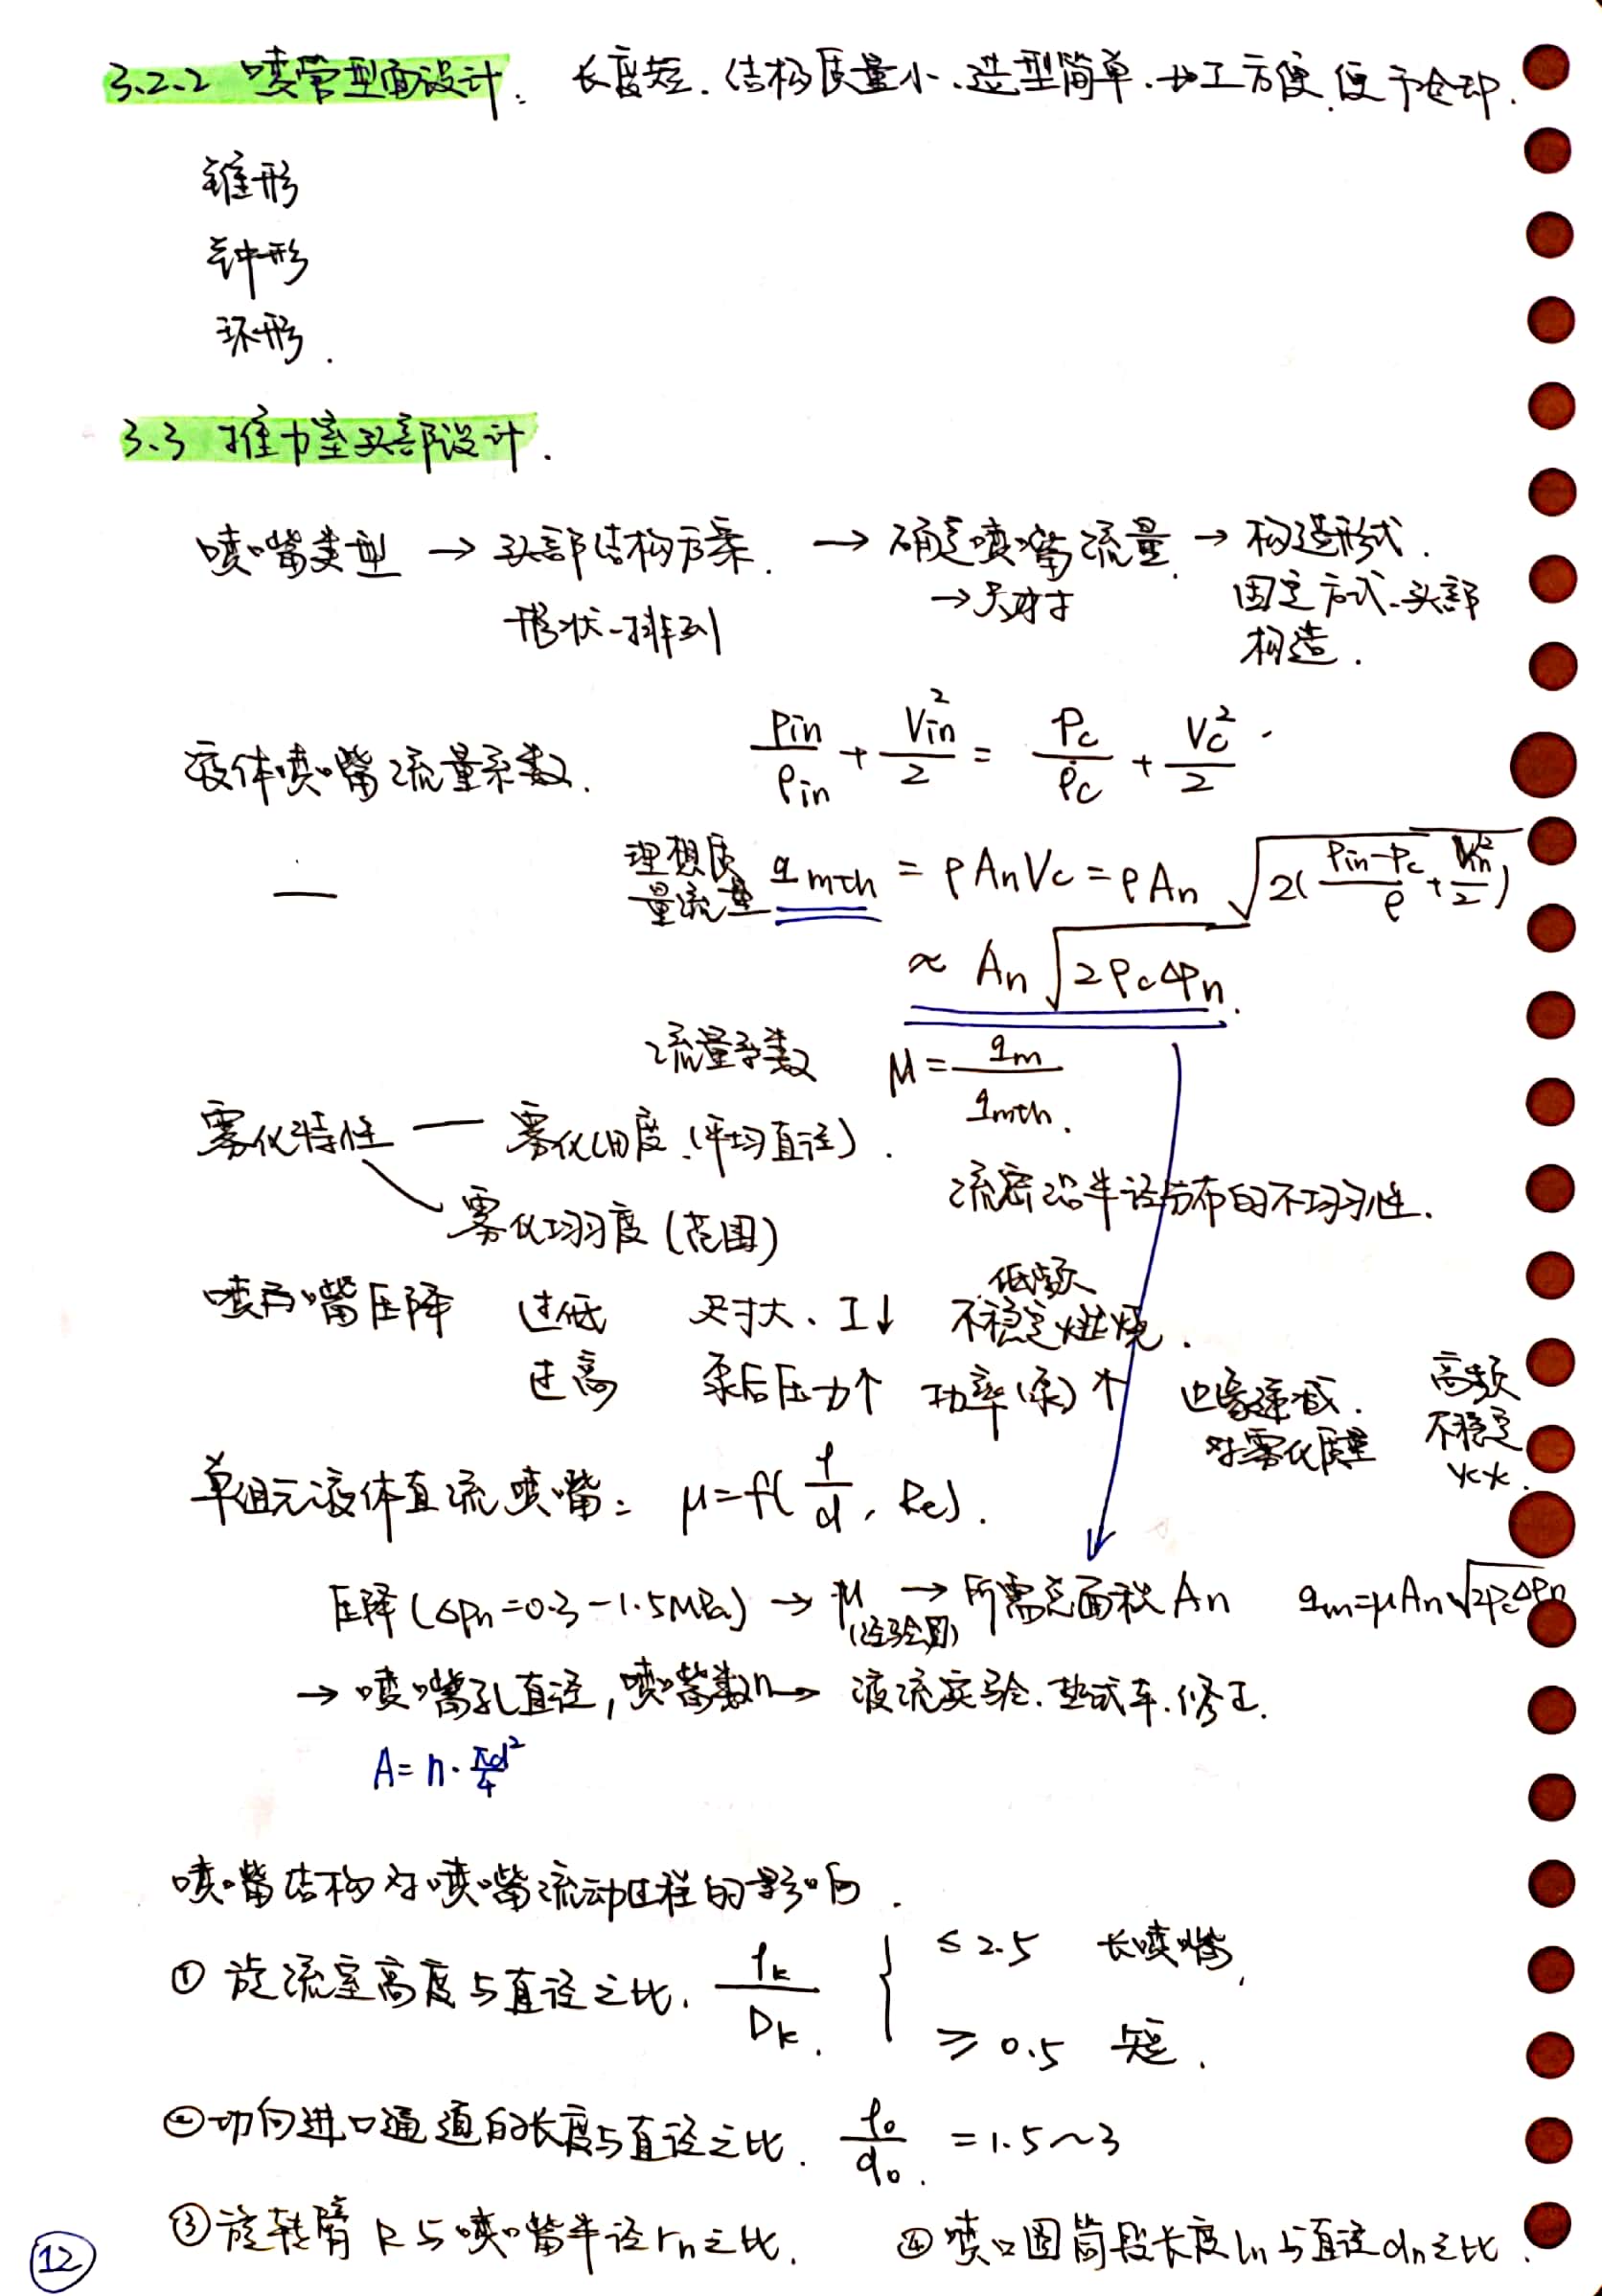 3.2.2 喷管型面设计: 长度短、结构质量小、造型简单、加工方便、便于冷却.
锥形
钟形
环形.
3.3 推力室头部设计.
喷嘴类型 → 头部结构方案. → 确定喷嘴流量. → 构造形式.
形状-排列 → 尺寸 固定方式-头部
构造.
液体喷嘴流量系数. Pin/ρin + Vin²/2 = Pc/ρc + Vc²/2.
理想质量流量 qmth = ρAnVc = ρAn √(2((Pin-Pc)/ρ + Vin²/2))
≈ An √(2ρcΔPn).
流量系数 μ = qm/qmth.
雾化特性 — 雾化细度(平均直径).
流密沿半径分布的不均匀性.
雾化均匀度(范围)
喷嘴压降 过低 尺寸大、I↓ 低频不稳定燃烧.
过高 泵后压力↑ 功率(泵)↑ 对雾化质量 高频不稳定
单组元液体直流喷嘴: μ=f(l/d, Re).
压降(ΔPn=0.3-1.5MPa) → μ(经验图) → 所需总面积An qm=μAn√(2ρcΔPn)
→ 喷嘴孔直径, 喷嘴数n → 液流实验、热试车、修正.
A=n·πd²/4
喷嘴结构对喷嘴流动过程的影响.
① 旋流室高度与直径之比. lk/Dk. { ≤2.5 长喷嘴,
≥0.5 短.
②切向进口通道的长度与直径之比. l0/d0. =1.5~3
③旋转臂R与喷嘴半径rn之比. ④喷口圆筒段长度ln与直径dn之比.
12